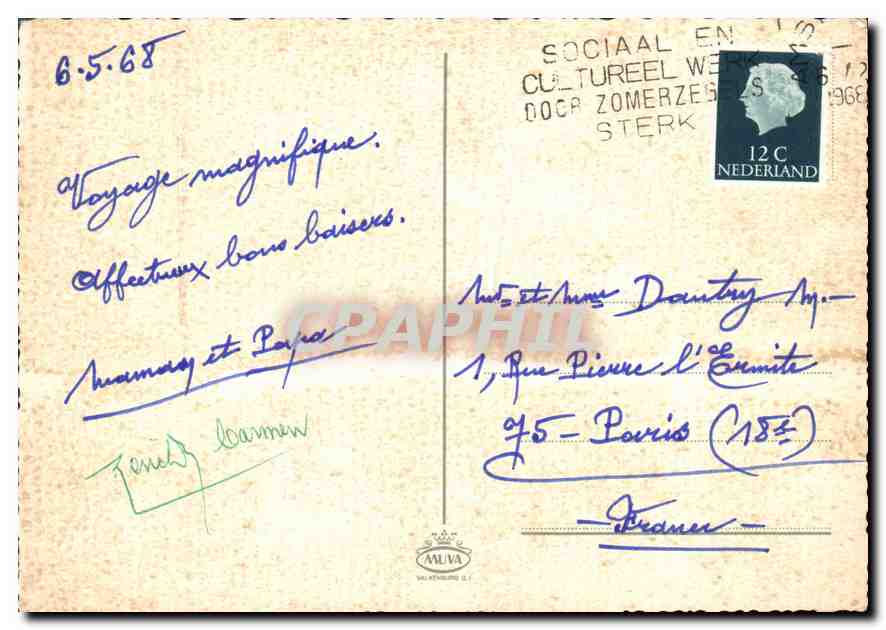 6.5.68
Voyage magnifique.
Affectueux bons baisers.
Maman et Papa
Carmen
SOCIAAL EN
CULTUREEL WERK
DOOR ZOMERZEGELS
STERK
1968
12 C
NEDERLAND
Mr et Mme Dautry M.
1, Rue Pierre l'Ermite
75 - Paris (18e)
- France -
CPAPHIL
MUVA
VALKENBURG (L.)